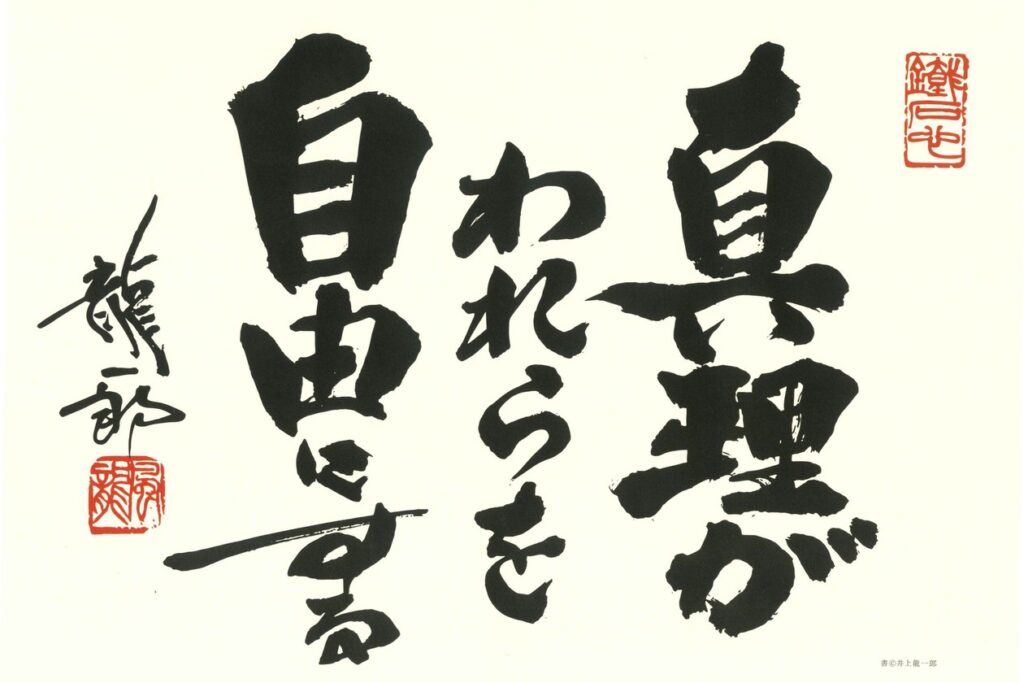 真理が
われらを
自由にする
龍一郎
書©井上龍一郎